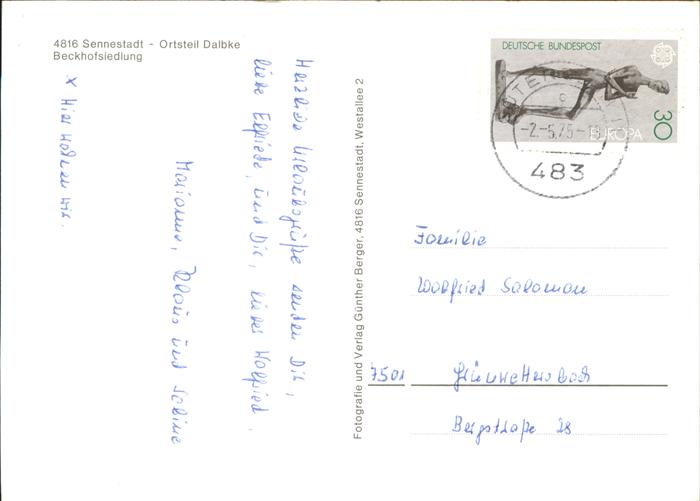 4816 Sennestadt - Ortsteil Dalbke
Beckhofsiedlung
x Hier wohnen wir.
Herzliche Urlaubsgrüße senden Dir,
liebe Elfriede, und Dir, lieber Wolfried.
Marianne, Klaus und Sabine
Fotografie und Verlag Günther Berger, 4816 Sennestadt, Westallee 2
DEUTSCHE BUNDESPOST
EUROPA
30
-2.-5.75-
483
Familie
Wolfried Salomon
7501 Grünwettersbach
Bergstraße 28